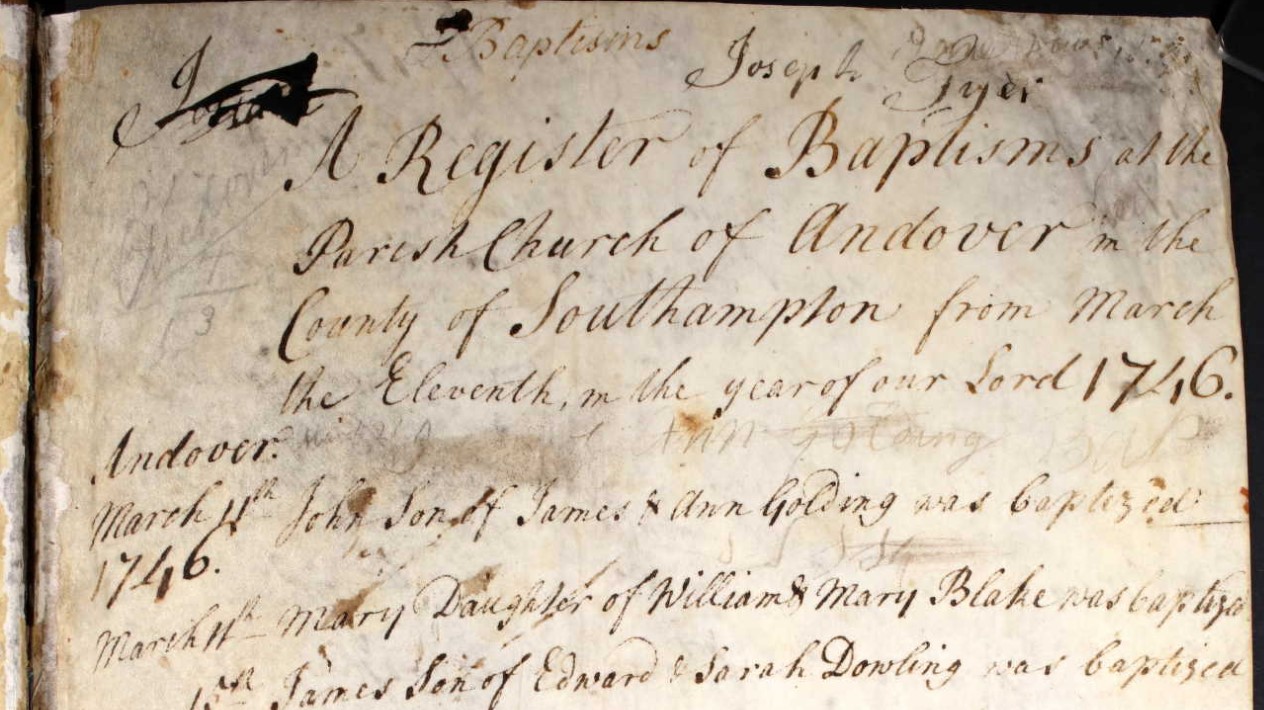 Baptisms
Joseph
Tyer
A Register of Baptisms at the
Parish Church of Andover in the
County of Southampton from March
the Eleventh, in the year of our Lord 1746.
Ann Golding
Andover.
March 11th John Son of James & Ann Golding was baptized
1746.
March 11th Mary Daughter of William & Mary Blake was baptized
15th James Son of Edward & Sarah Dowling was baptized